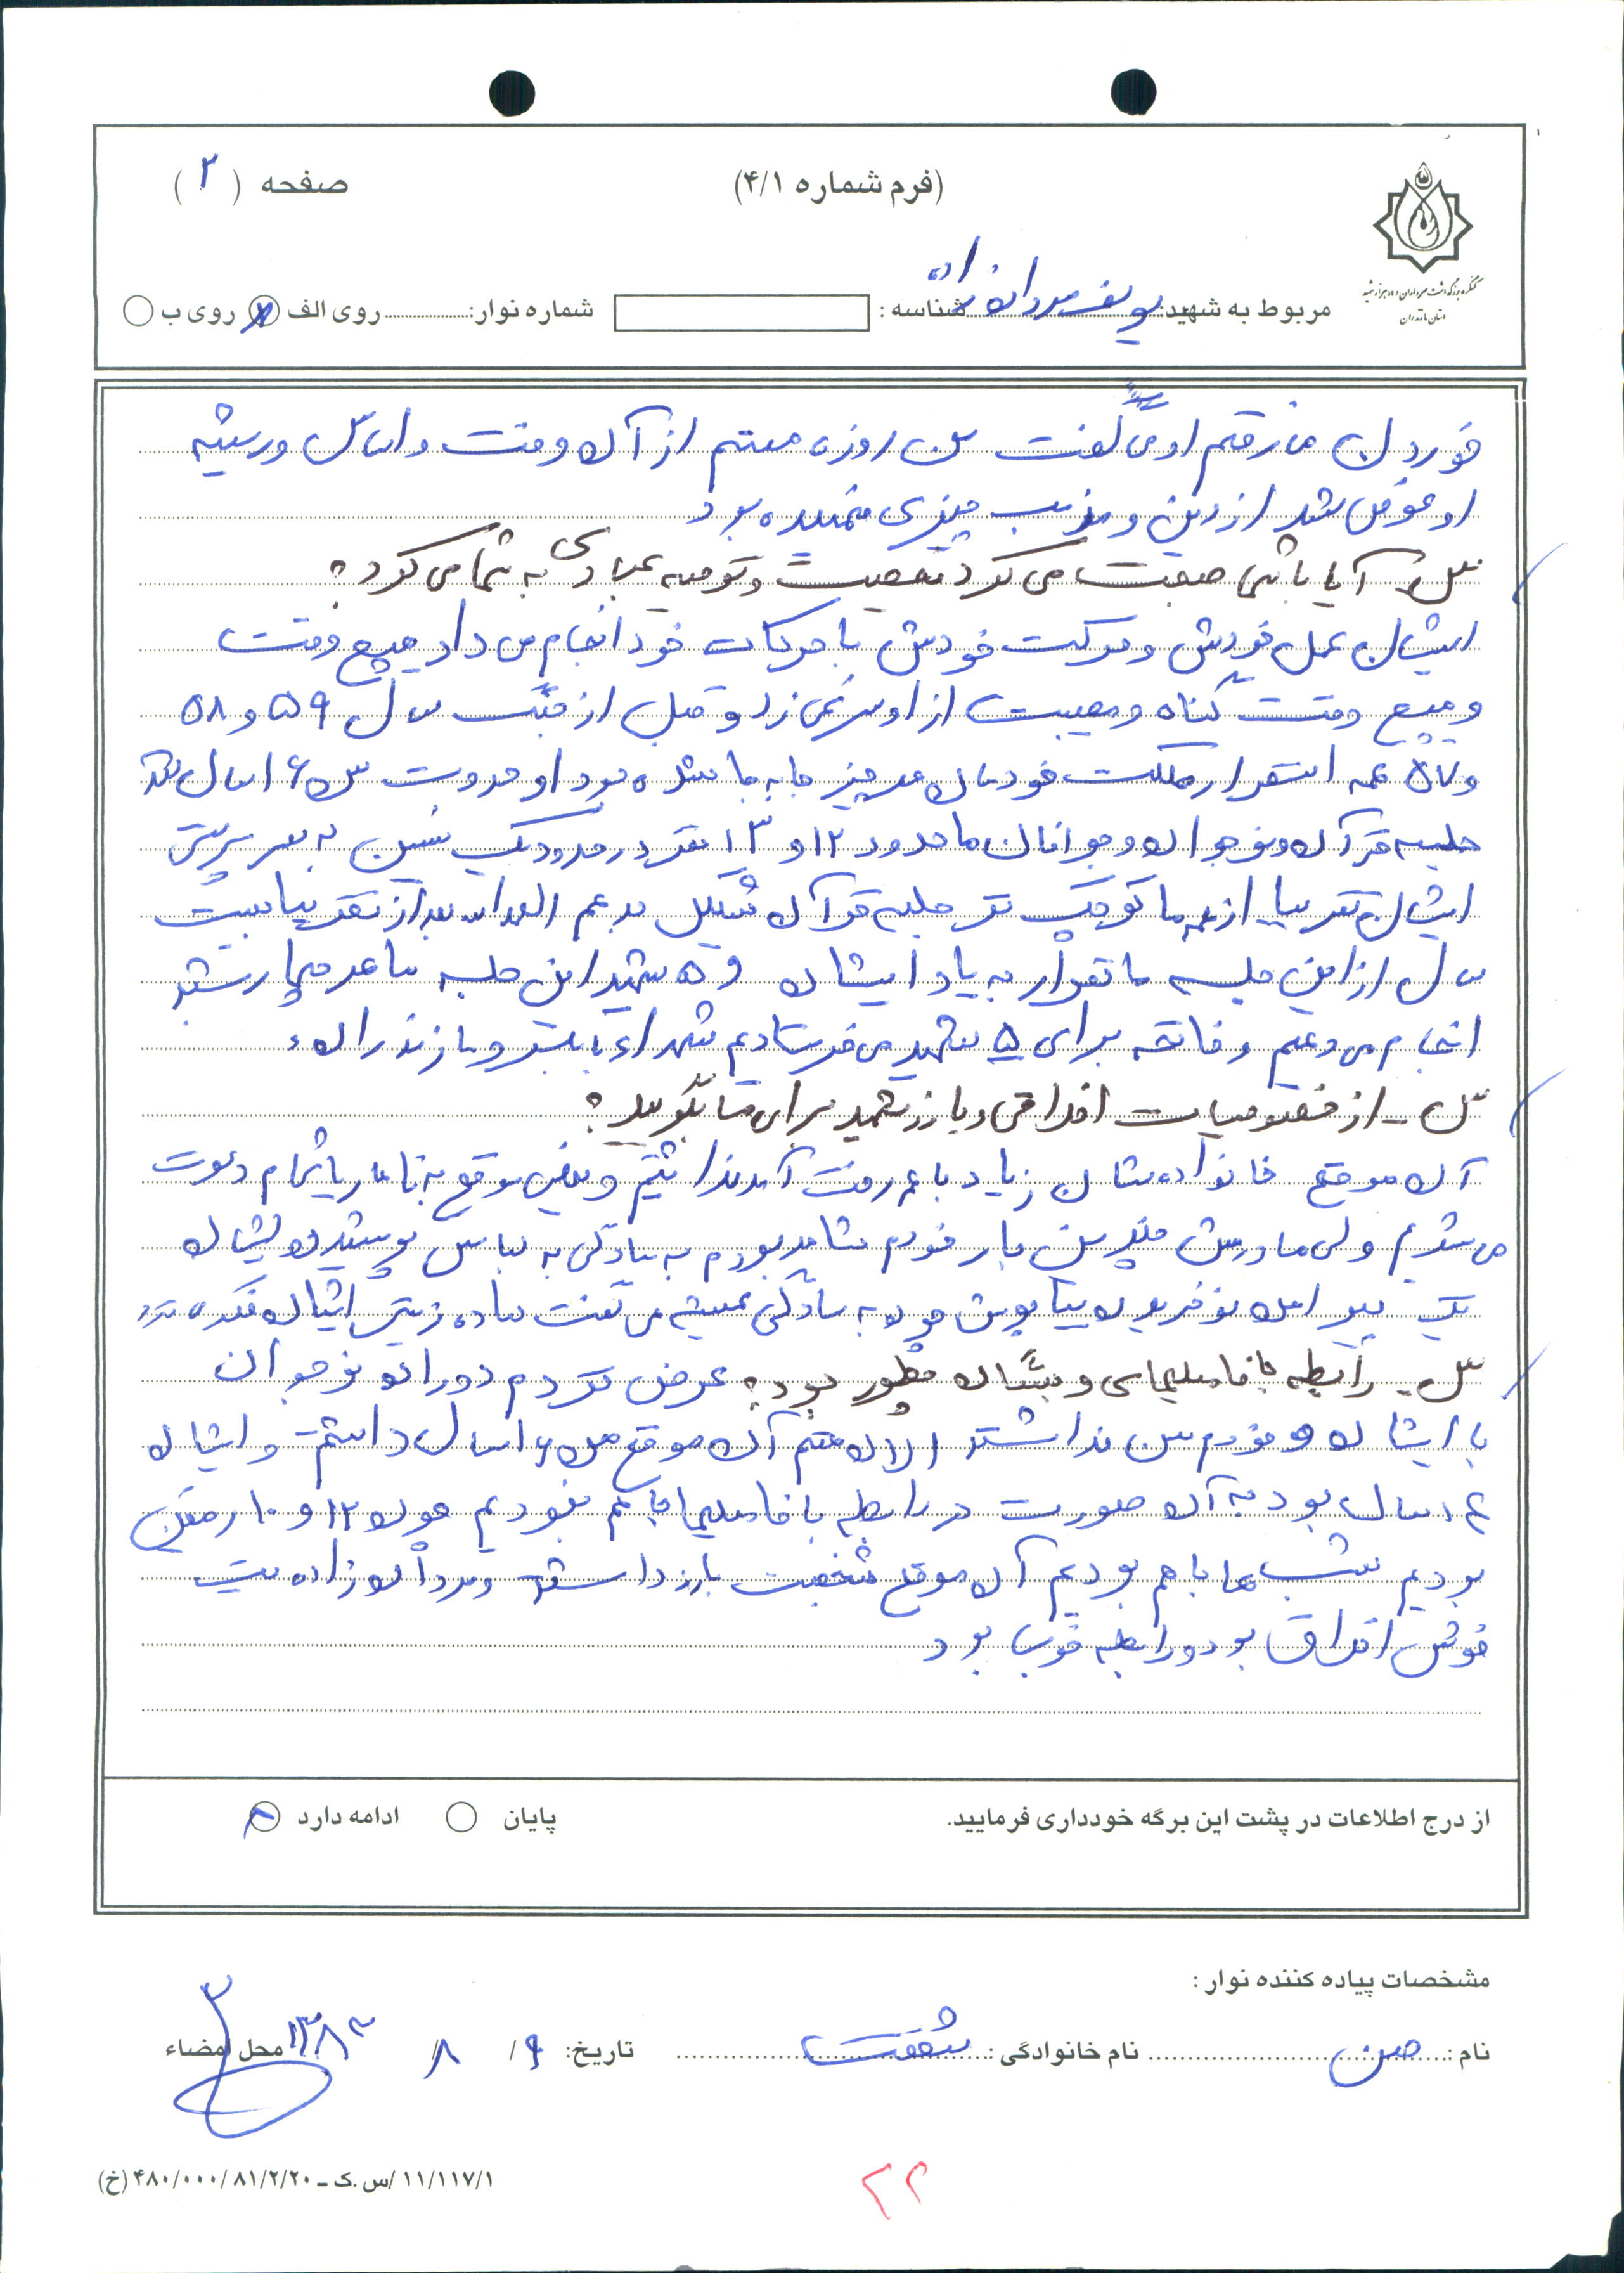 (فرم شماره ۴/۱)
صفحه (۲)
کنگره بزرگداشت سرداران و ده هزار شهید
استان مازندران
مربوط به شهید: یوسف مردانزاده شناسه: شماره نوار: روی الف روی ب
خوردن می رفتم او می گفت من روزه هستم از آن وقت واساس وریشه
او عوض شد از دین و مذهب چیزی فهمیده بود
س: آیا با شما صحبت می کرد نصیحت و توصیه عبادی به شما می کرد؟
ایشان عمل خودش وحرکت خودش با حرکات خود انجام می داد هیچ وقت
و هیچ وقت گناه و مصیبت از او سر نمی زد و قبل از جنگ سال ۵۹ و ۵۸
و ۵۷ همه استقرار مملکت خودمان هر چیز جابه جا شده بود او حدودت سن ۱۶ سال
جلسه قرآن ونوجوان وجوانان ما حدود ۱۲ و ۱۳ نفر در حدود یک سنین به سرپرستی
ایشان تقریبا از همه ما کوچک تر جلسه قرآن تشکیل بعد از تقریبا بیست
سال از این جلسه ما به یاد ایشان و ۵ شهید این جلسه ما هر چهارشنبه
انجام می دهیم و فاتحه برای ۵ شهید می فرستادیم شهداء بابلسر و مازندران
س - از خصوصیات اخلاقی وبارز شهید برای ما بگویید؟
آن موقع خانواده شان زیاد با هم رفت آمد نداشتیم و بعضی موقع به ناهار یا شام دعوت
می شدیم ولی مادرش چندین بار خودم شاهد بودم به سادگی به لباس پوشیدن ایشان
یک پیراهن نو خریدن بیا بپوش چون به سادگی همیشه می گفت ساده زیستی ایشان
س - رابطه با فامیلهای وبستگان چطور بود؟ عرض کردم دوران نوجوان
با ایشان و خودم سن نداشتند الان هستم آن موقع من ۱۶ سال داشتم و ایشان
۱۴ سال بود به آن صورت در رابطه با فامیلها با هم نبودیم چون ۱۲ و ۱۰ رفیق
بودیم شب ها با هم بودیم آن موقع شخصیت بارز داشتند ومردان زاده
خوش اخلاق بود و رابطه خوب بود
از درج اطلاعات در پشت این برگه خودداری فرمایید.
ادامه دارد پایان
مشخصات پیاده کننده نوار:
نام: حسن نام خانوادگی: شفقت تاریخ: ۹/ ۸/ ۱۳۸۳ محل امضاء
۱۱/۱۱۷/۱/س.ک ـ ۴۸۰/۰۰۰/۸۱/۲/۲۰ (خ)
۲۲